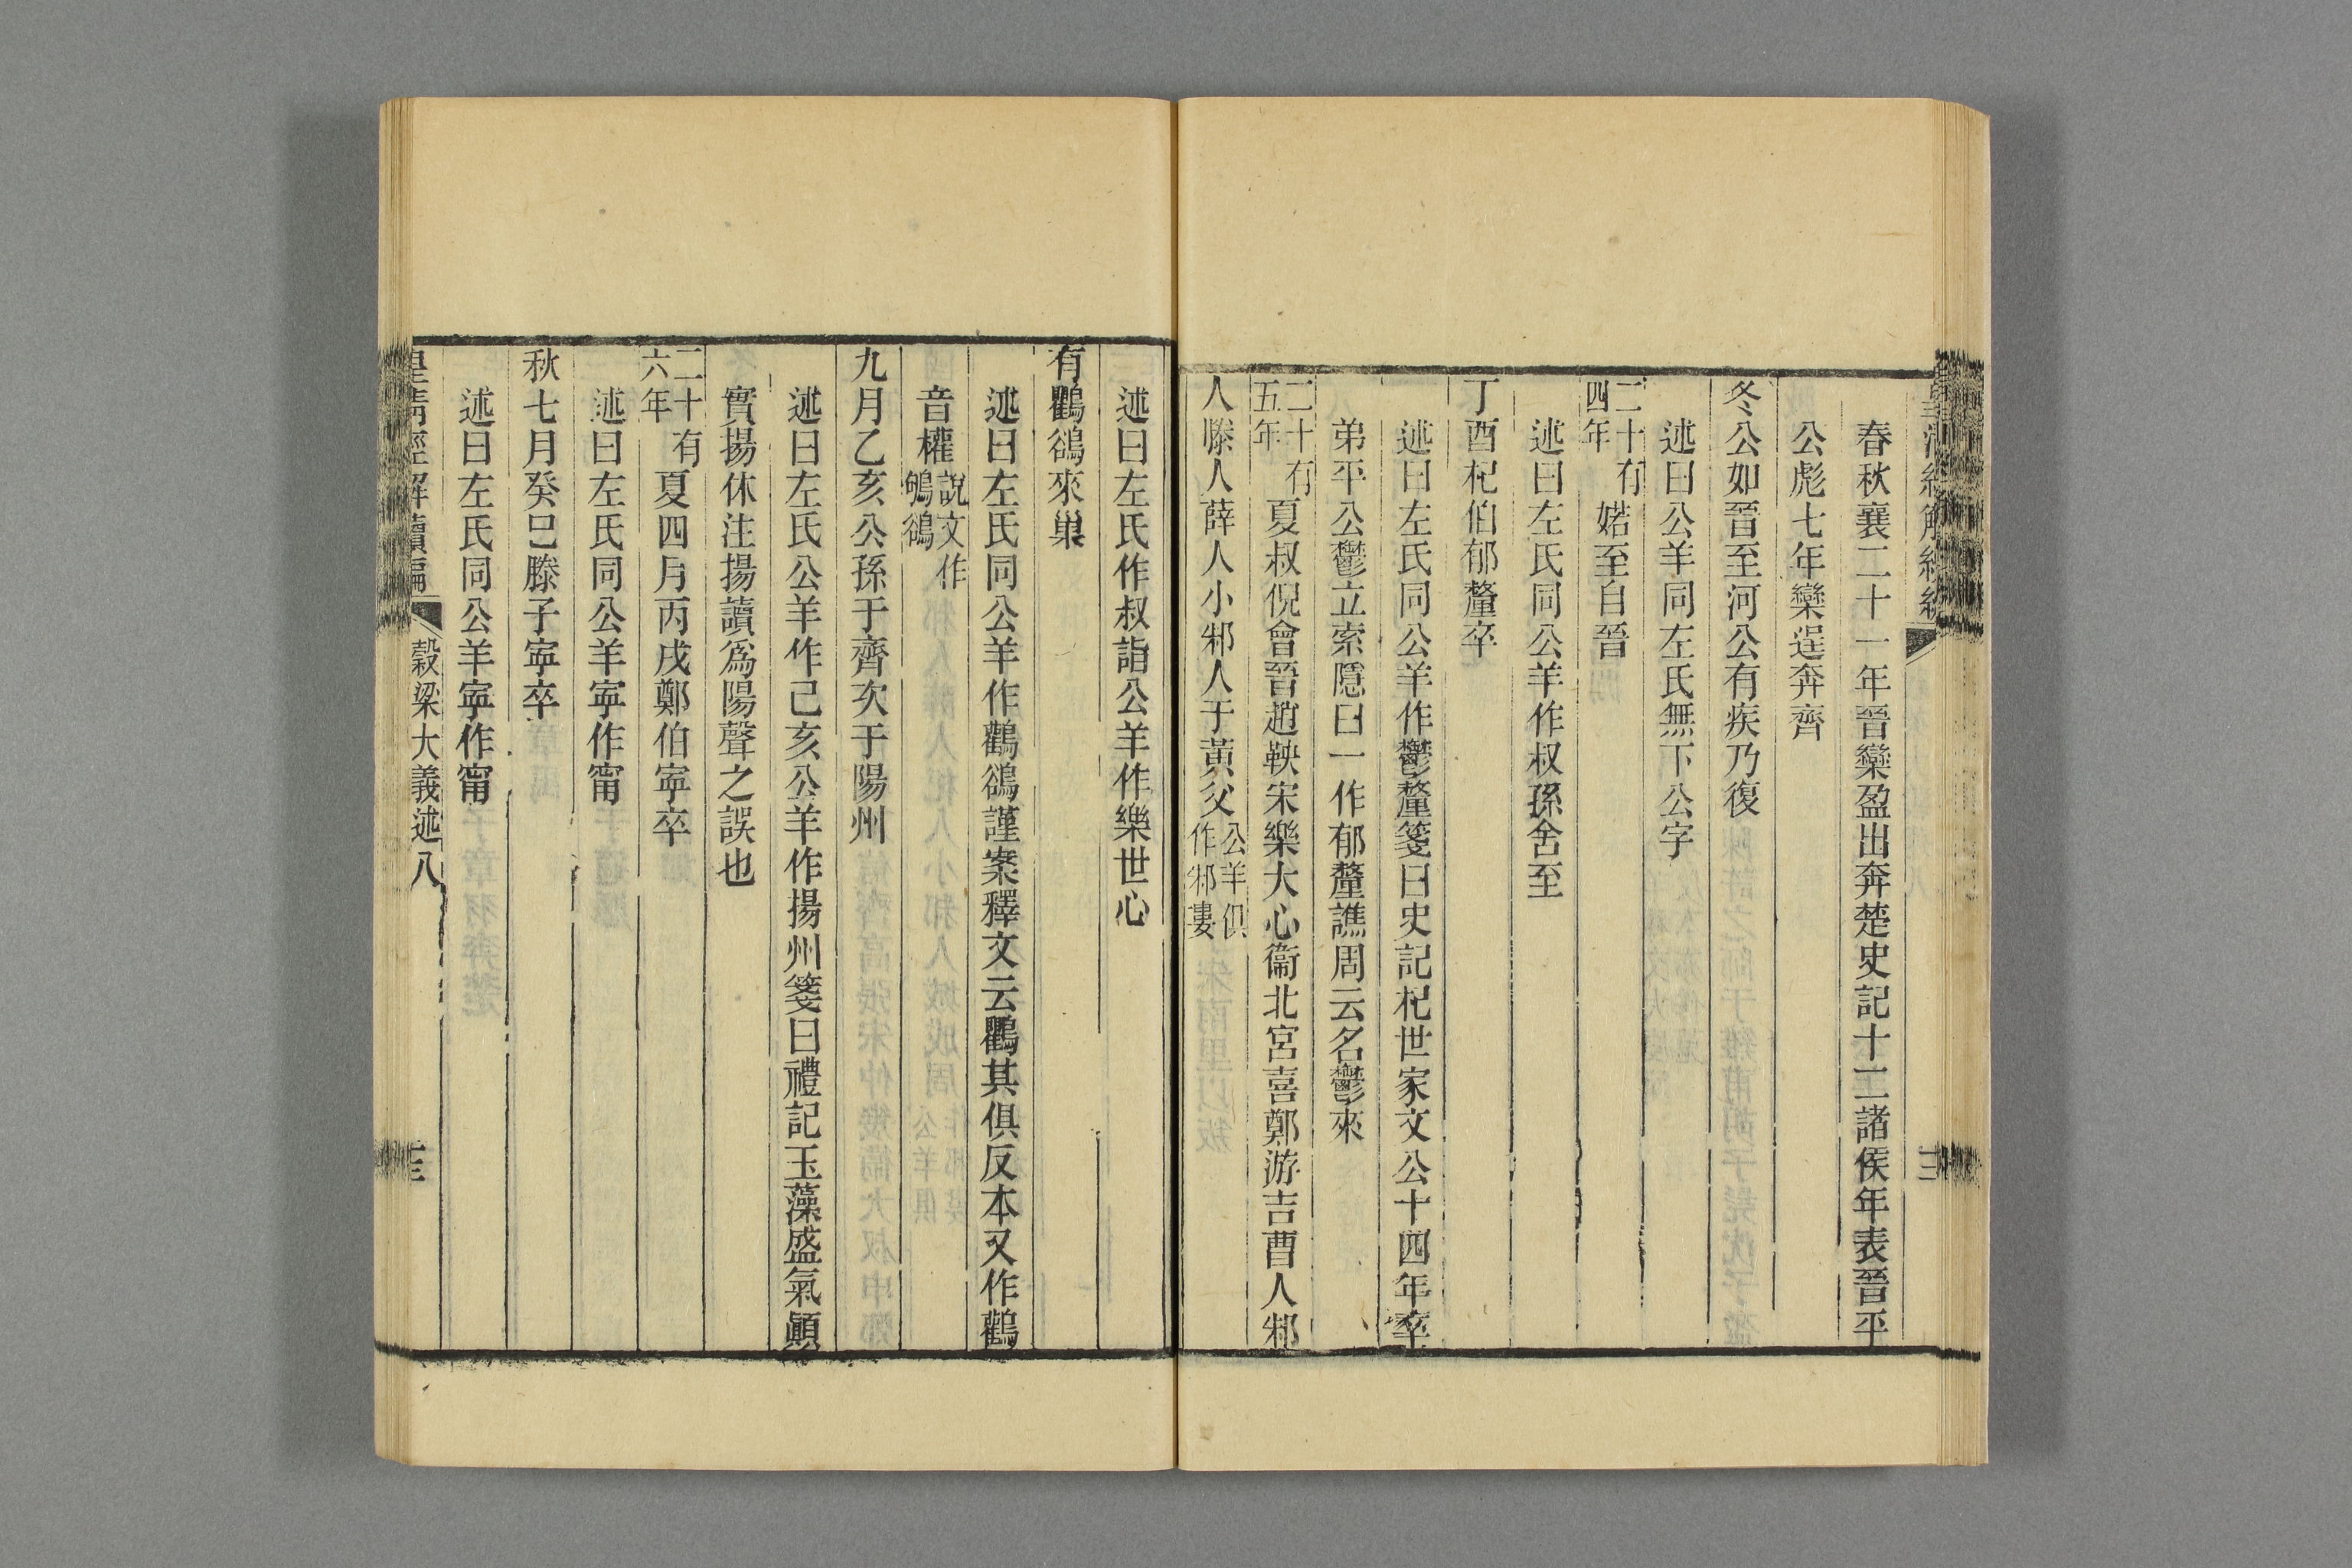 春秋襄二十一年晉欒盈出奔楚史記十二諸侯年表晉平
公彪七年欒逞奔齊
冬公如晉至河公有疾乃復
述曰公羊同左氏無下公字
二十有四年婼至自晉
述曰左氏同公羊作叔孫舍至
丁酉杞伯郁釐卒
述曰左氏同公羊作鬱釐箋曰史記杞世家文公十四年卒
弟平公鬱立索隱曰一作郁釐譙周云名鬱來
二十有五年夏叔倪會晉趙鞅宋樂大心衞北宮喜鄭游吉曹人邾
人滕人薛人小邾人于黃父公羊俱作邾婁
述曰左氏作叔詣公羊作樂世心
有鸛鵒來巢
述曰左氏同公羊作鸛鵒謹案釋文云鸛其俱反本又作鸛
音權說文作鴝鵒
九月乙亥公孫于齊次于陽州
述曰左氏公羊作己亥公羊作揚州箋曰禮記玉藻盛氣顚
實揚休注揚讀爲陽聲之誤也
二十有六年夏四月丙戌鄭伯寕卒
述曰左氏同公羊寕作甯
秋七月癸巳滕子寕卒
述曰左氏同公羊寕作甯
皇淸經解續編 穀梁大義述八